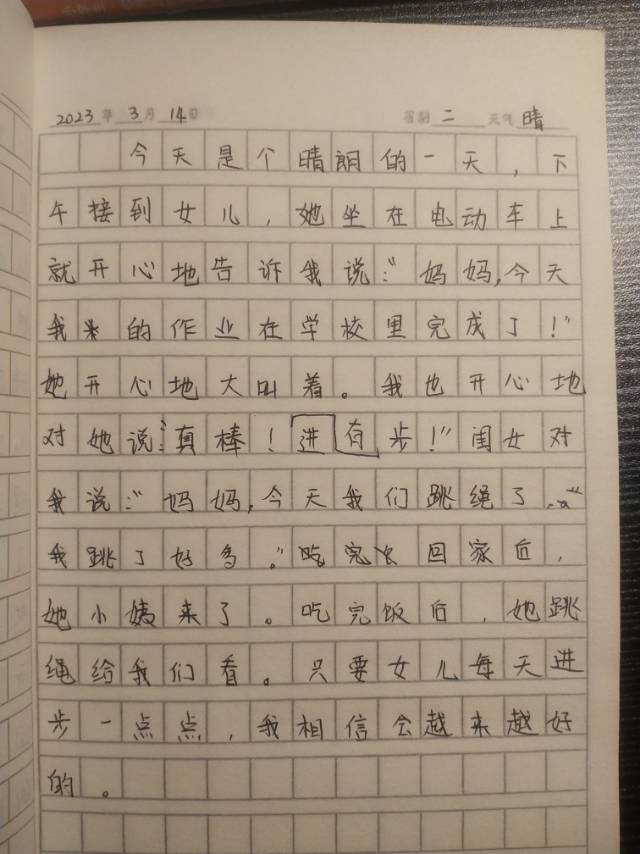 2023年3月14日 星期二 天气晴
今天是个晴朗的一天，下
午接到女儿，她坐在电动车上
就开心地告诉我说：“妈妈，今天
我的作业在学校里完成了！”
她开心地大叫着。我也开心地
对她说：“真棒！进有步！”闺女对
我说：“妈妈，今天我们跳绳了，
我跳了好多。”吃完回家后，
她小姨来了。吃完饭后，她跳
绳给我们看。只要女儿每天进
步一点点，我相信会越来越好
的。